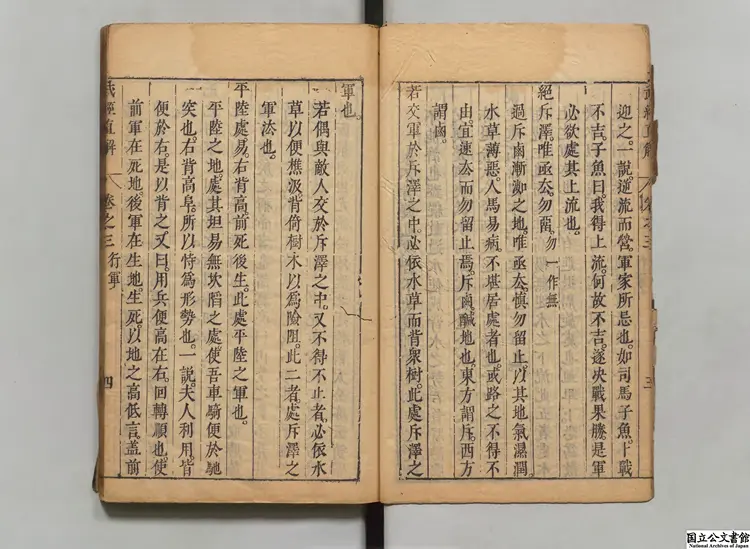 迎之。一說。逆流而營。軍家所忌也。如司馬子魚。卜戰
不吉。子魚曰。我得上流。何故不吉。遂決戰果勝。是軍
必欲處其上流也。
絕斥澤。唯亟去。勿留。勿一作無
過斥鹵漸洳之地。唯亟去。慎勿留止。以其地氣濕潤。
水草薄惡。人馬易病。不堪居處者也。或路之不得不
由。宜速去而勿留止焉。斥鹵。鹹地也。東方謂斥。西方
謂鹵。
若交軍於斥澤之中。必依水草而背衆樹。此處斥澤之
軍也。
若偶與敵人交於斥澤之中。又不得不止者。必依水
草以便樵汲。背倚樹木以爲險阻。此二者。處斥澤之
軍法也。
平陸處易。右背高。前死後生。此處平陸之軍也。
平陸之地。處其坦易無坎陷之處。使吾車騎便於馳
突也。右背高阜。所以恃爲形勢也。一說。夫人利用皆
便於右。是以背之。又曰。用兵便高在右。回轉順也。使
前軍在死地。後軍在生地。生死。以地之高低言。蓋前
武經直解 卷之三 行軍 四
国立公文書館
National Archives of Japan